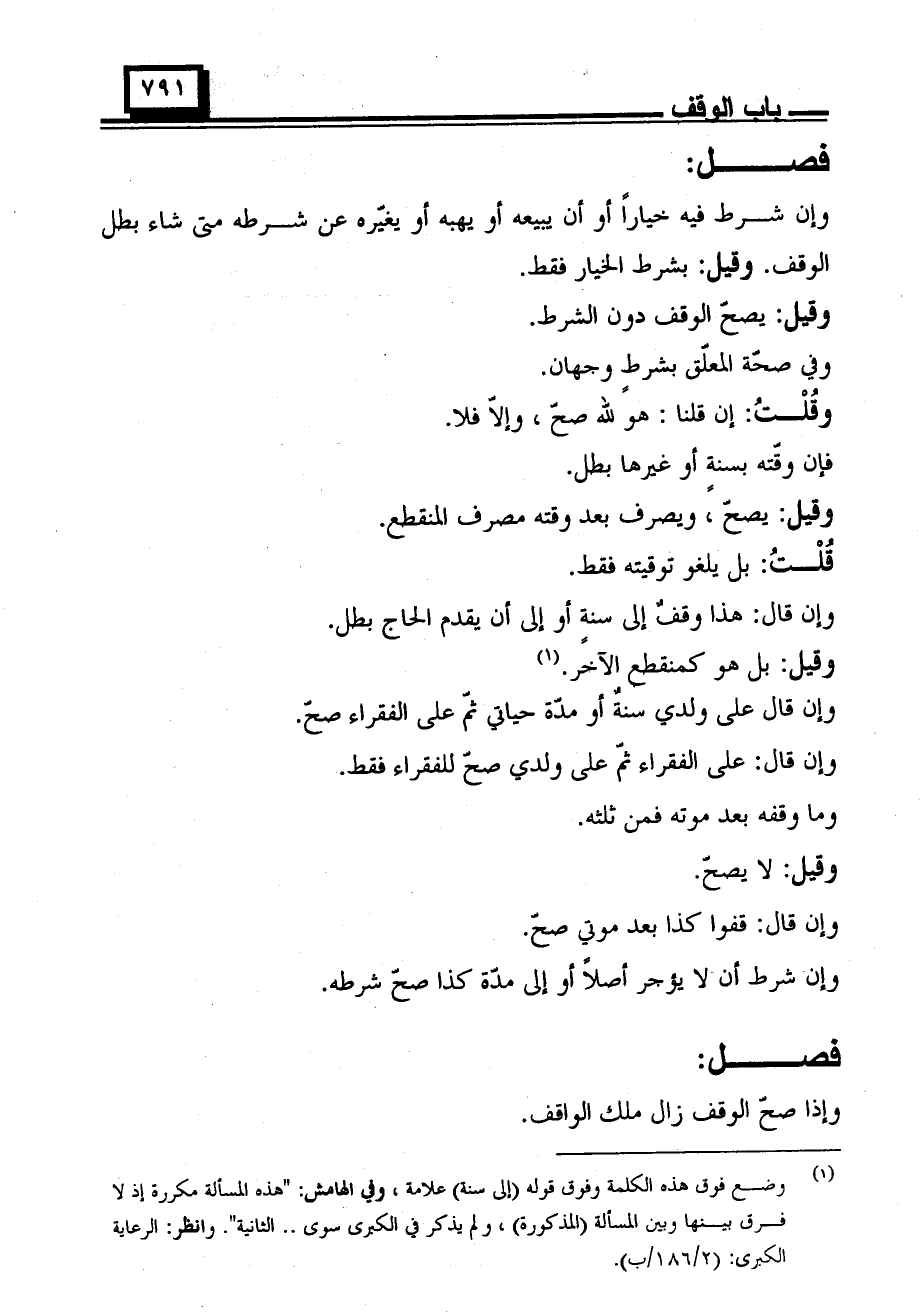 ٧٩١
باب الوقف
فصل:
وإن شرط فيه خياراً أو أن يبيعه أو يهبه أو يغيّره عن شرطه متى شاء بطل
الوقف. وقيل: بشرط الخيار فقط.
وقيل: يصحّ الوقف دون الشرط.
وفي صحّة المعلّق بشرطٍ وجهان.
وقُلْتُ: إن قلنا : هو لله صحّ ، وإلاّ فلا.
فإن وقّته بسنةٍ أو غيرها بطل.
وقيل: يصحّ ، ويصرف بعد وقته مصرف المنقطع.
قُلْتُ: بل يلغو توقيته فقط.
وإن قال: هذا وقفٌ إلى سنةٍ أو إلى أن يقدم الحاج بطل.
وقيل: بل هو كمنقطع الآخر.(١)
وإن قال على ولدي سنةً أو مدّة حياتي ثمّ على الفقراء صحّ.
وإن قال: على الفقراء ثمّ على ولدي صحّ للفقراء فقط.
وما وقفه بعد موته فمن ثلثه.
وقيل: لا يصحّ.
وإن قال: قفوا كذا بعد موتي صحّ.
وإن شرط أن لا يؤجر أصلاً أو إلى مدّة كذا صحّ شرطه.
فصل:
وإذا صحّ الوقف زال ملك الواقف.
(١) وضع فوق هذه الكلمة وفوق قوله (إلى سنة) علامة ، وفي الهامش: "هذه المسألة مكررة إذ لا
فرق بينها وبين المسألة (المذكورة) ، ولم يذكر في الكبرى سوى .. الثانية". وانظر: الرعاية
الكبرى: (١٨٦/٢/ب).